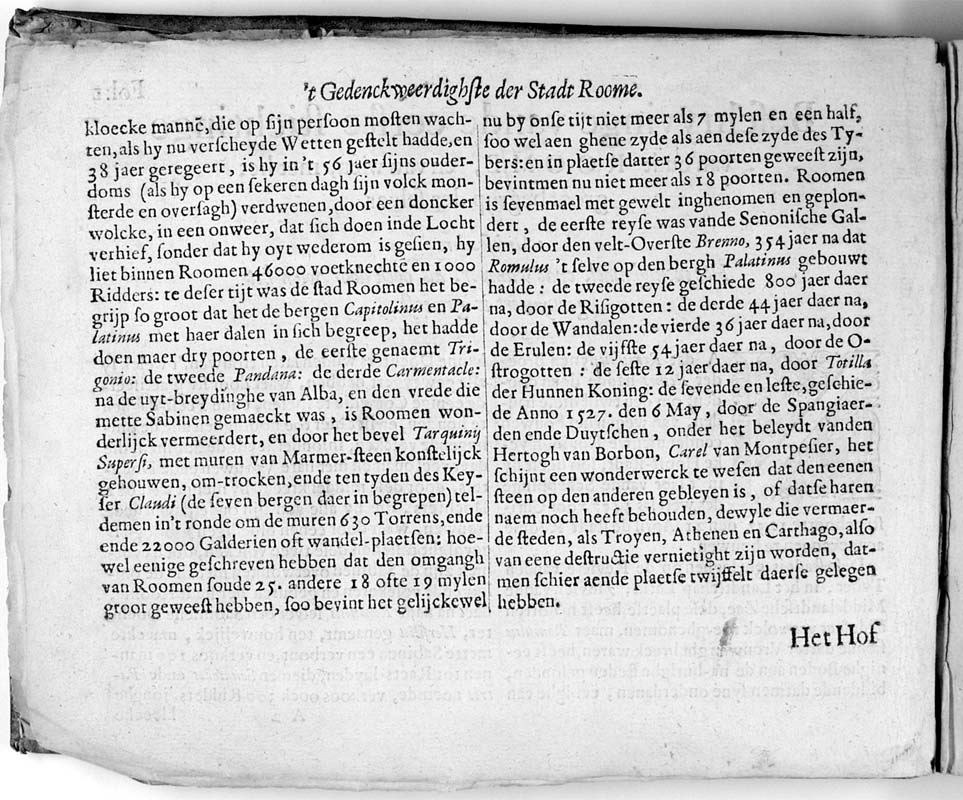 't Gedenckweerdighste der Stadt Roome.
kloecke mannē, die op sijn persoon mosten wach-
ten, als hy nu verscheyde Wetten gestelt hadde, en
38 jaer geregeert, is hy in 't 56 jaer sijns ouder-
doms (als hy op een sekeren dagh sijn volck mon-
sterde en oversagh) verdwenen, door een doncker
wolcke, in een onweer, dat sich doen inde Locht
verhief, sonder dat hy oyt wederom is gesien, hy
liet binnen Roomen 46000 voetknechtē en 1000
Ridders: te deser tijt was de stad Roomen het be-
grijp so groot dat het de bergen Capitolinus en Pa-
latinus met haer dalen in sich begreep, het hadde
doen maer dry poorten, de eerste genaemt Tri-
gonio: de tweede Pandana: de derde Carmentacle:
na de uyt-breydinghe van Alba, en den vrede die
mette Sabinen gemaeckt was, is Roomen won-
derlijck vermeerdert, en door het bevel Tarquinij
Supersi, met muren van Marmer-steen konstelijck
gehouwen, om-trocken, ende ten tyden des Key-
ser Claudi (de seven bergen daer in begrepen) tel-
demen in't ronde om de muren 630 Torrens, ende
ende 22000 Galderien oft wandel-plaetsen: hoe-
wel eenige geschreven hebben dat den omgangh
van Roomen soude 25. andere 18 ofte 19 mylen
groot geweest hebben, soo bevint het gelijckewel
nu by onse tijt niet meer als 7 mylen en een half,
soo wel aen ghene zyde als aen dese zyde des Ty-
bers: en in plaetse datter 36 poorten geweest zijn,
bevintmen nu niet meer als 18 poorten. Roomen
is sevenmael met gewelt inghenomen en geplon-
dert, de eerste reyse was vande Senonische Gal-
len, door den velt-Overste Brenno, 354 jaer na dat
Romulus 't selve op den bergh Palatinus gebouwt
hadde: de tweede reyse geschiede 800 jaer daer
na, door de Risigotten: de derde 44 jaer daer na,
door de Wandalen: de vierde 36 jaer daer na, door
de Erulen: de vijfste 54 jaer daer na, door de O-
strogotten: de seste 12 jaer daer na, door Totilla
der Hunnen Koning: de sevende en leste, geschie-
de Anno 1527. den 6 May, door de Spangiaer-
den ende Duytschen, onder het beleydt vanden
Hertogh van Borbon, Carel van Montpesier, het
schijnt een wonderwerck te wesen dat den eenen
steen op den anderen gebleyen is, of datse haren
naem noch heeft behouden, dewyle die vermaer-
de steden, als Troyen, Athenen en Carthago, also
van eene destructie vernietight zijn worden, dat-
men schier aende plaetse twijffelt daerse gelegen
hebben.
Het Hof